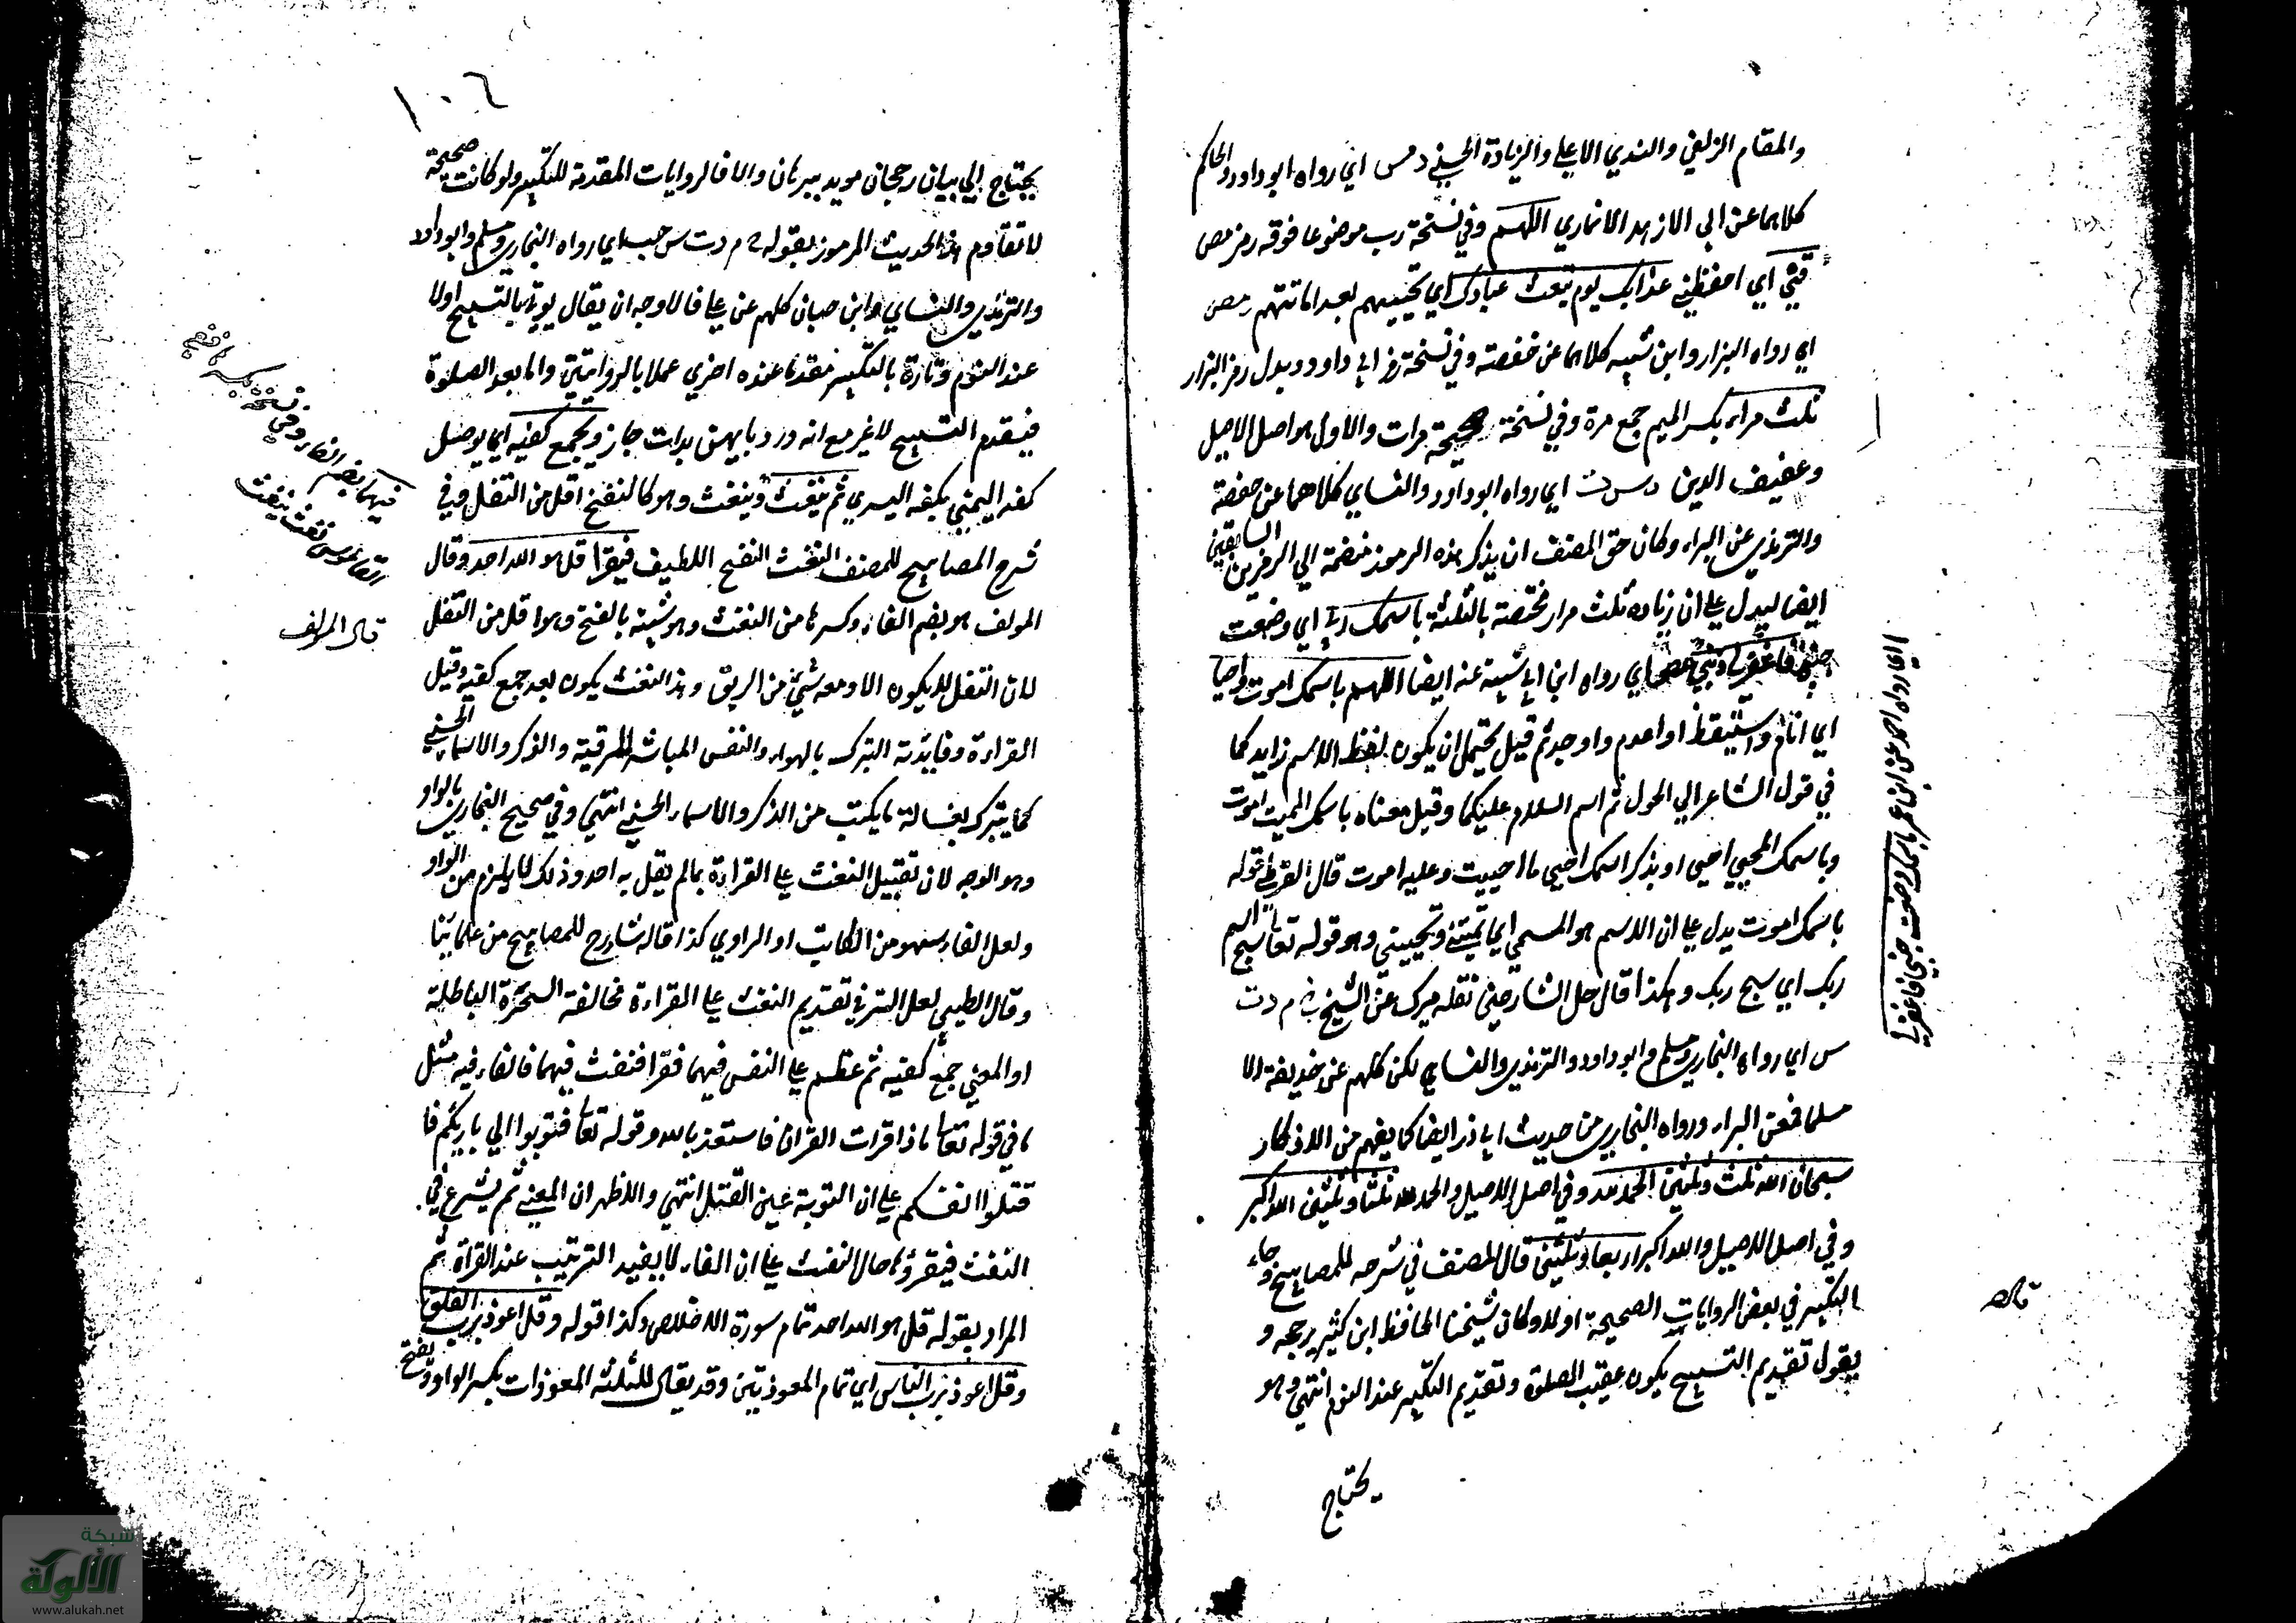 والمقام الزلفي والندي الاعلي والزيادة الحسني د مس اي رواه ابو داود والحاكم
كلاهما عن ابي الازهر الانماري اللهم وفي نسخة رب موضوعا فوقه رمز مص
قني اي احفظني عذابك يوم تبعث عبادك اي تحييهم بعد اماتتهم ر مص
اي رواه البزار وابن شيبه كلاهما عن حفصة وفي نسخة رمز ابي داود بدل رمز البزار
ثلث مرار بكسر الميم جمع مرة وفي نسخة صحيحة مرات والاول هو اصل الاصيل
وعفيف الدين د س ت اي رواه ابو داود والنسايي كلاهما عن حفصة
والترمذي عن البراء وكان حق المصنف ان يذكر هذه الرموز منضمة الي الرمزين السابقين
ايضا ليدل علي ان زياده ثلث مرار مختصة بالثلثة باسمك ربي اي وضعت
جنبي فاغفر لي ذنبي مص اي رواه ابن ابي شيبة عنه ايضا اللهم باسمك اموت واحيا
اي انام واستيقظ او اعدم واوجد ثم قيل يحتمل ان يكون لفظ الاسم زايد كما
في قول الشاعر الي الحول ثم اسم السلام عليكما وقيل معناه باسمك المميت اموت
وباسمك المحيي احيي او بذكر اسمك احيي ما احييت وعليه اموت قال القرطبي قوله
باسمك اموت يدل علي ان الاسم هو المسمي اي تميتني وتحييني وهو قوله تعالي سبح اسم
ربك اي سبح ربك وهكذا قال جل الشارحين نقله ميرك عن الشيخ خ م د ت
س اي رواه البخاري ومسلم وابو داود والترمذي والنسايي لكن كلهم عن حذيفة الا
مسلما فعن البراء ورواه البخاري من حديث ابي ذر ايضا كما يفهم من الاذكار
سبحان الله ثلث وثلثين الحمد لله وفي اصل الاصيل والحمد لله ثلثا وثلثين الله اكبر
وفي اصل الاصيل والله اكبر اربعا وثلثين قال المصنف في شرحه للمصابيح وجاء
التكبير في بعض الروايات الصحيحة اولا وكان شيخنا الحافظ ابن كثير يرجحه و
يقول تقديم التسبيح يكون عقيب الصلوة وتقديم التكبير عند النوم انتهي وهو
يحتاج
اي رواه احمد عن ابن عمر باسمك وضعت جنبي فاغفر لي
١٠٤
يحتاج الي بيان رجحان مويد ببرهان والا فالروايات المقدمة للتكبير ولو كانت صحيحة
لا تقاوم هذا الحديث المرموز بقوله خ م د ت س حب اي رواه البخاري ومسلم وابو داود
والترمذي والنسايي وابن حبان كلهم عن علي فالاوجه ان يقال يوتي بالتسبيح اولا
عند النوم وتارة بالتكبير مقدما عنده اخري عملا بالروايتين واما بعد الصلوة
فيتقدم التسبيح لا غير مع انه ورد بايهن بدات جاز ويجمع كفيه اي يوصل
كفه اليمني بكفه اليسري ثم ينفث وينفث وهو كالنفخ اقل من التفل وفي
شرح المصابيح للمصنف النفث النفخ اللطيف فيقرا قل هو الله احد وقال
المولف هو بضم الفاء وكسرها من النفث وهو شبيه بالنفخ وهو اقل من التفل
لان التفل لا يكون الا ومعه شيئ من الريق وهذا النفث يكون بعد جمع كفيه وقيل
القراءة وفايدته التبرك بالهواء والنفس المباشر للرقية والذكر والاسماء الحسني
كما يتبرك بغسالة ما يكتب من الذكر والاسماء الحسني انتهي وفي صحيح البخاري بالواو
وهو الوجه لان تقبيل النفث علي القراءة بما لم يقل به احد وذلك لا يلزم من الواو
ولعل الفاء سهو من الكاتب او الراوي كذا قاله شارح للمصابيح من علمائنا
وقال الطيبي لعل السر في تقديم النفث علي القراءة مخالفة السحرة الباطلة
او المعني جمع كفيه ثم عظم علي النفس فيهما فقرا فنفث فيهما فالفاء فيه مثل
ما في قوله تعالي فاذا قرات القران فاستعذ بالله وقوله تعالي فتوبوا الي باريكم فا
قتلوا انفسكم علي ان التوبة عين القتل انتهي والاظهر ان المعني ثم يشرع في
النفث فيقرؤ ها حال النفث علي ان الفاء لا يفيد الترتيب عند القراة ثم
المراد بقوله قل هو الله احد تمام سورة الاخلاص وكذا قوله وقل اعوذ برب الفلق
وقل اعوذ برب الناس اي تمام المعوذتين وقد يقال للثلثه المعوذات بكسر الواو وبفتح
فيهما بضم الفاء وفي نسخة بكسرها
القاموس نفث ينفث
قال المولف
شبكة
الألوكة
www.alukah.net